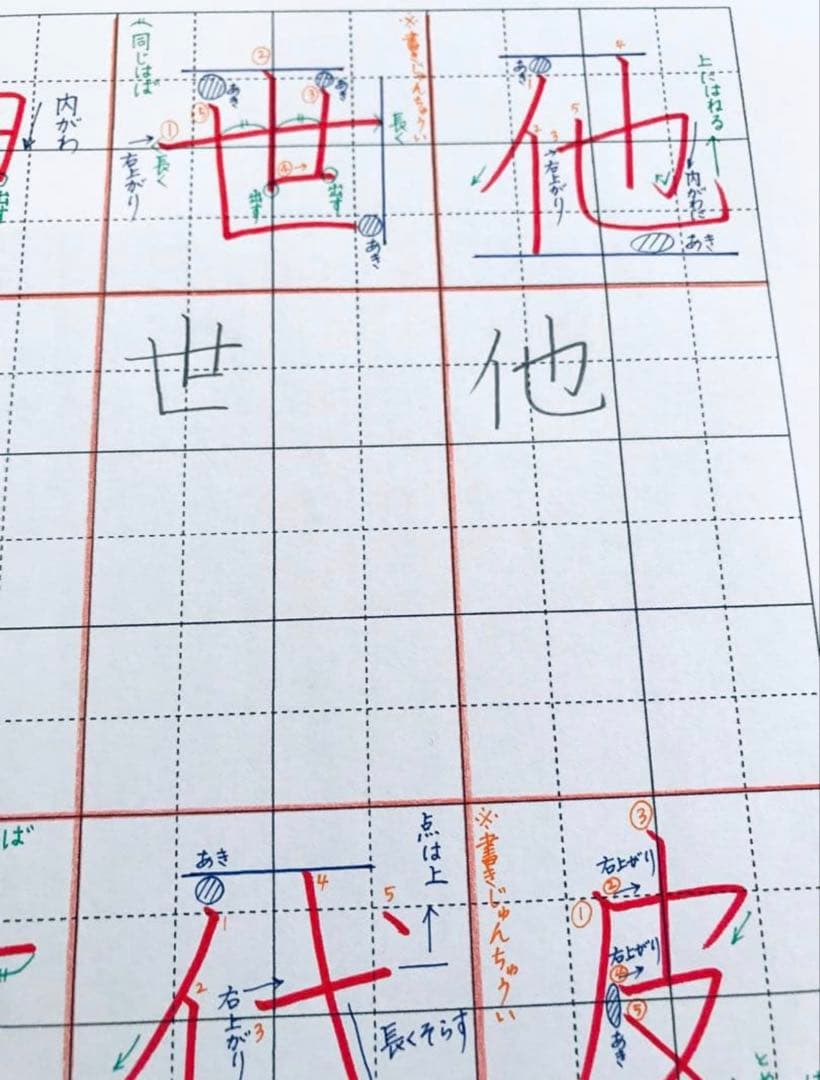 内がわ
出す
(同じはば
世
①
②
③
④→
⑤
あき
あき
右上がり
長く
長く
出す
出す
あき
※書きじゅんちゅうい
他
1
2
3
4
5
あき
右上がり
内がわに
上にはねる
あき
世
他
ば
代
あき
1
2
3
4
5
右上がり
点は上
長くそらす
※書きじゅんちゅうい
皮
①
②
③
④
⑤
右上がり
右上がり
あき